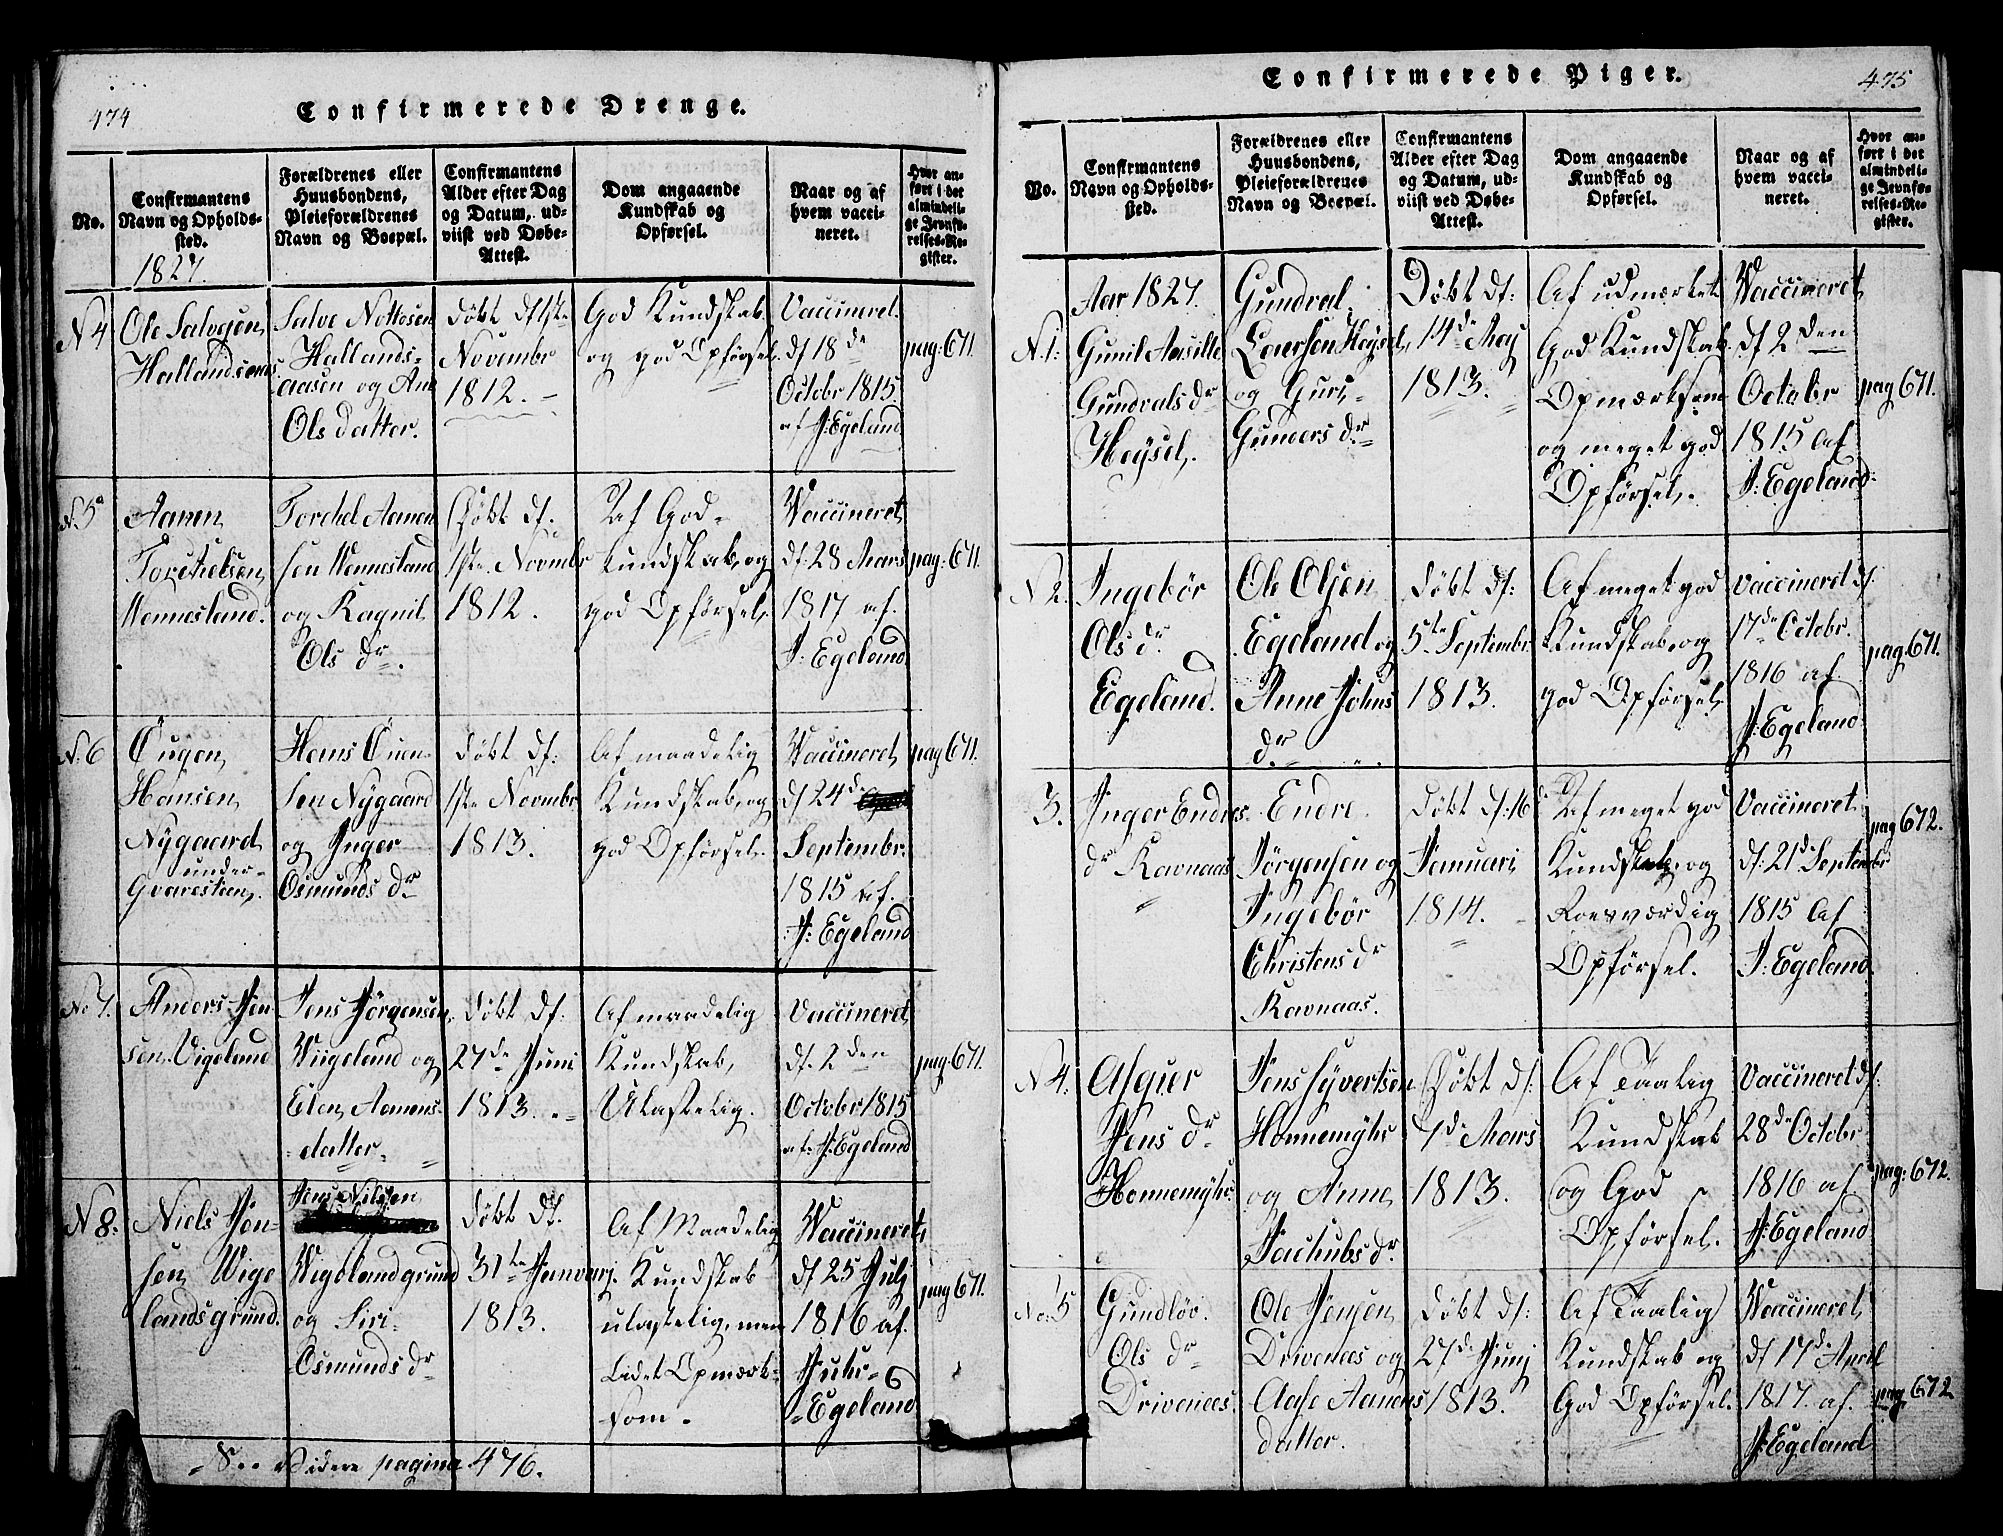 474
Confirmerede Drenge.
No.
Confirmantens
Navn og Opholds-
sted.
Forældrenes eller
Huusbondens,
Pleieforældrenes
Navn og Boepæl.
Confirmantens
Alder efter Dag
og Datum, ud-
viist ved Døbe-
Attest.
Dom angaaende
Kundskab og
Opførsel.
Naar og af
hvem vacci-
neret.
Hvor an-
ført i det
almindeli-
ge Jevnfø-
relses-Re-
gister.
1827.
N 4
Ole Salvesen
Salve Nottosen
Hallands-
aasen og Ane
Ols datter.
Døbt
Novembr
1812.
God Kundskab
og god Opførsel.
Vaccineret
df 18de
Octobr 1815.
af J: Egeland
pag: 671.
N. 5
Aanen
Torchelsen
Wennesland.
Torchel Aanen
sen Wennesland
og Ragnil
Ols dr.
Døbt df.
1ste Novmbr
1812.
Af God
Kundskab, og
god Opførsel.
Vaccineret
df: 28 Mars
1817 af.
J: Egeland
pag: 671.
N: 6
Ougen
Hansen
Nygaard
under
Hans Ouen-
sen Nygaard
og Inger
Osmunds dr
Døbt df:
1ste Novmbr
1813.
Af maadelig
Kundskab, og
god Opførsel.
Vaccineret
df 24de
Septembr.
1815 af.
J: Egeland
pag 671.
No 7.
Anders Jen-
sen Vigeland
Jens Jörgensen
Wiigeland og
Elen Aanens-
datter
Døbt df:
27de Juni
1813.
Af maadelig
Kundskab,
Ulastelig.
Vaccineret
df. 2den
Octobr 1815
af: J: Egeland
pag. 671.
N 8.
Niels Jen-
sen Wige
landsgrund.
Jens Nilsen
Wigelandgrund
og Siri
Osmunds dr
Døbt df.
31te Januarj.
1813.
Af Maadelig
Kundskab
ulastelig, men
Lidet Opmærk-
som.
Vaccineret
df 25 Julj
1816 af.
Egeland
pag 671.
See Videre pagina 476.
475
Confirmerede Piger.
No.
Confirmantens
Navn og Opholds-
sted.
Forældrenes eller
Huusbondens,
Pleieforældrenes
Navn og Boepæl.
Confirmantens
Alder efter Dag
og Datum, ud-
viist ved Døbe-
Attest.
Dom angaaende
Kundskab og
Opførsel.
Naar og af
hvem vacci-
neret.
Hvor an-
ført i det
almindeli-
ge Jevnfø-
relses-Re-
gister.
Aar 1827.
N. 1:
Gunil
Gundvals dr
Heysel.
Gundval
Heysel,
og Guri
Guneers dr
Døbt df:
14de Mej
1813.
Af udmærket
God Kundskab.
Opmærksom
og meget god
Opførsel.
Vaccineret
df 2den
Octobr
1815 af
J: Egeland
pag 671.
N 2.
Ingebör
Ols dr
Egeland.
Ole Olsen
Egeland og
Anne Johns
dr
Døbt df:
5te Septembr.
1813.
Af meget god
Kundskab, og
god Opførsel.
Vaccineret df.
17de Octobr.
1816 af.
J: Egeland
pag 671.
3.
Inger Endres
dr Ravnaas
Endre
Jörgensen og
Ingebör
Christens dr
Ravnaas.
Døbt df: 16
Januari
1814.
Af meget god
Kundskab, og
Roesværdig
Opførsel.
Vaccineret
df: 21de September
1815 af
J: Egeland
pag 672.
N 4.
Asguer
Jens dr
Honnemyhr
Jens Syvertsen
Honnemyhr
og Anne
Jachubs dr
Døbt df
7de Mars
1813.
Af Taalig
Kundskab
og God
Opførsel.
Vaccineret df:
28de Octobr
1816 af
J: Egeland
pag: 672.
No: 5
Gundlöv
Ols dr
Drivenees.
Ole Jensen
Drivenees og
Aase Aanens
datter.
Døbt df:
27de Junj
1813.
Af Taalig
Kundskab og
God Opførsel.
Vaccineret
df 17de April
1817. af.
J: Egeland
pag. 672